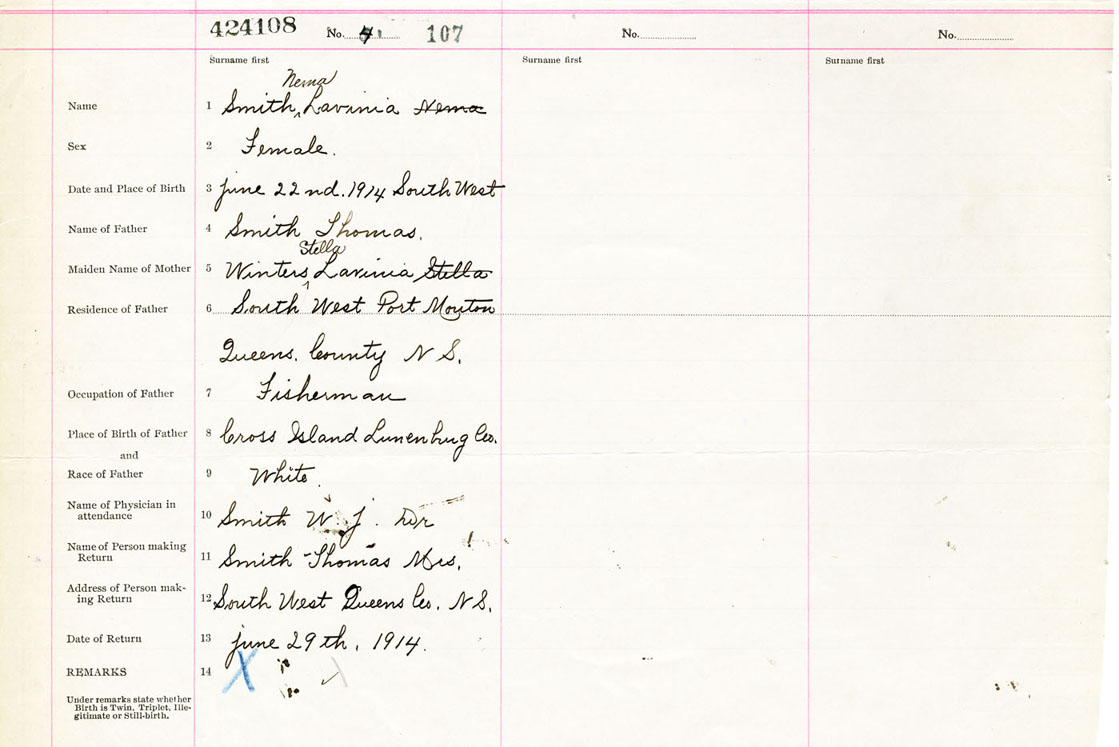 424108 No. 41 107 No. No.
Surname first Surname first Surname first
Nema
Name 1 Smith, Lavinia Nema
Sex 2 Female.
Date and Place of Birth 3 june 22nd. 1914 South West
Name of Father 4 Smith Thomas.
Stella
Maiden Name of Mother 5 Winters Lavinia Stella
Residence of Father 6 South West Port Mouton
Queens. County N S.
Occupation of Father 7 Fisherman
Place of Birth of Father 8 Cross Island Lunenbug Co.
and
Race of Father 9 White.
Name of Physician in
attendance 10 Smith W. J. Dr
Name of Person making
Return 11 Smith Thomas Mrs.
Address of Person mak-
ing Return 12 South West Queens Co. N S.
Date of Return 13 june 29th, 1914.
REMARKS 14 X
Under remarks state whether
Birth is Twin, Triplet, Ille-
gitimate or Still-birth.